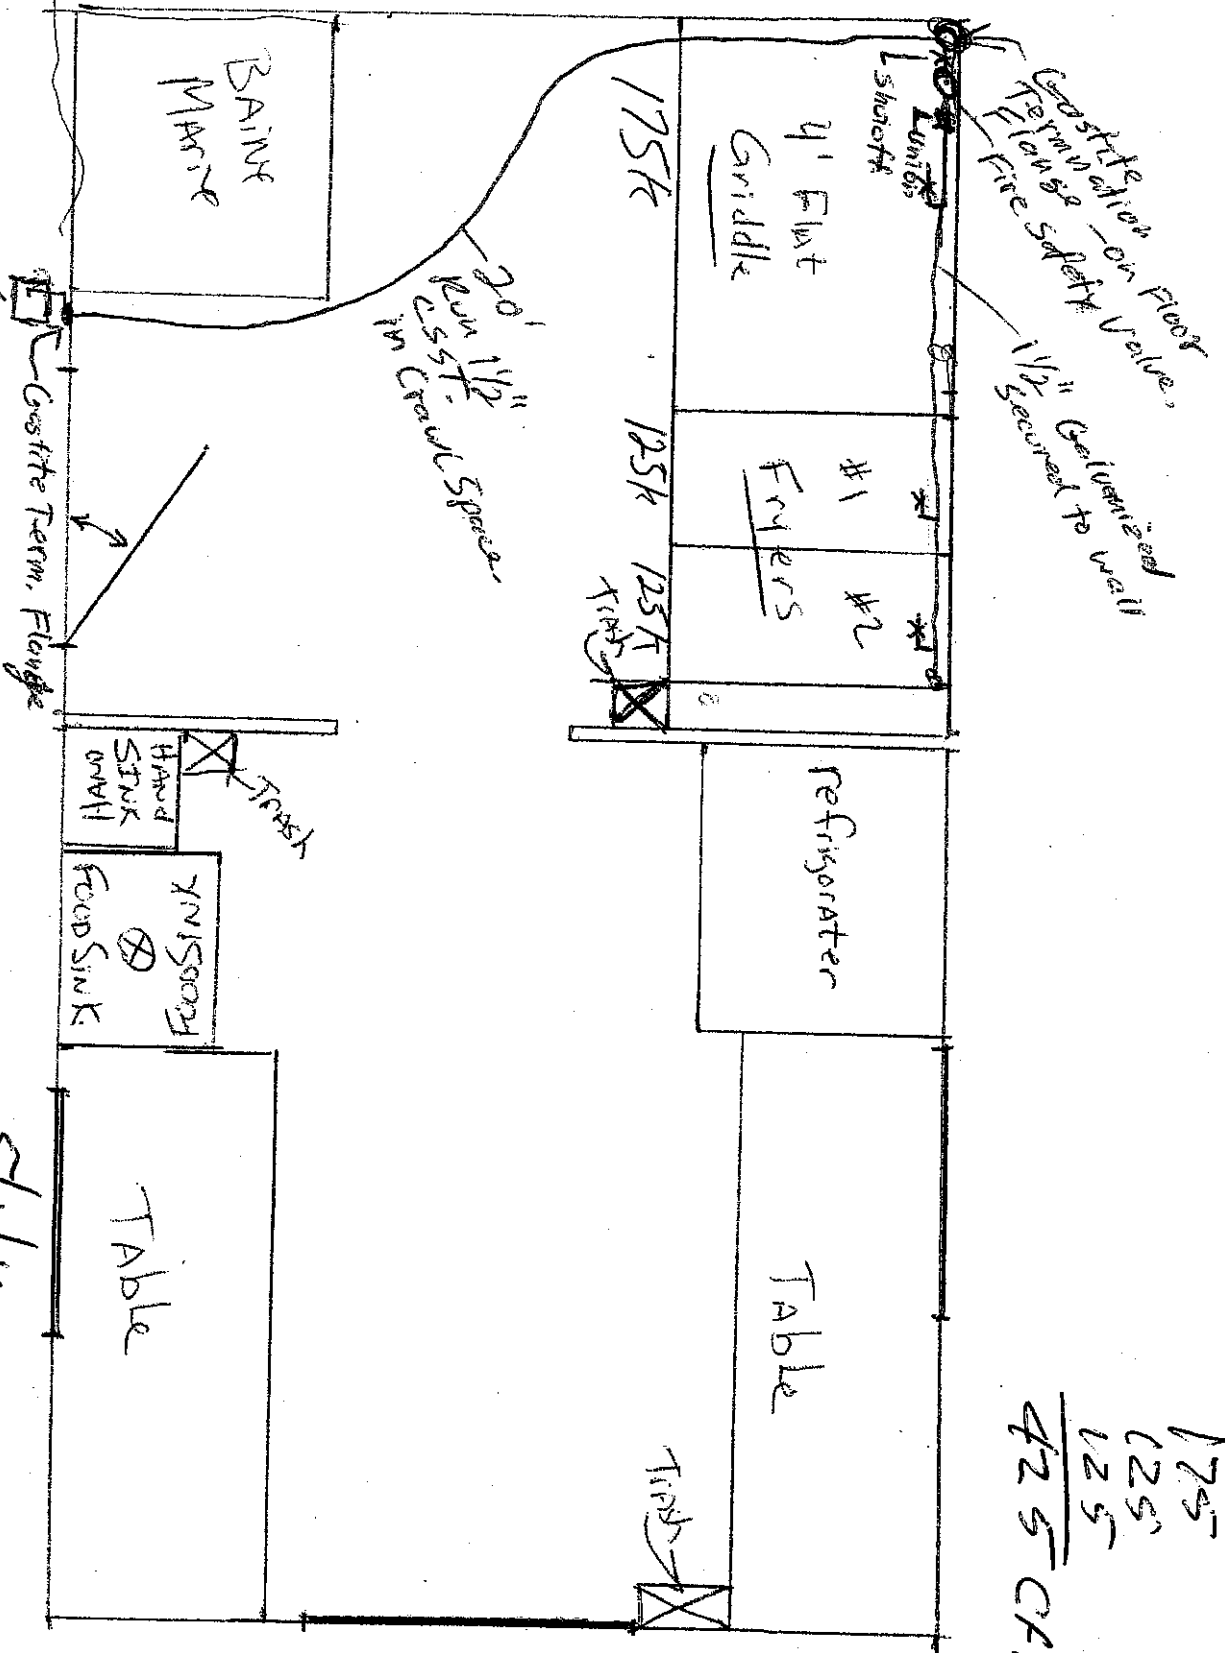 Gastite
Termination
Flange - on Floor
Fire Safety Valve.
1 1/2" Galvanized
secured to wall
shutoff
Union
4' Flat
Griddle
175k
#1
#2
Fryers
125k
125k
Trash
BAINE
MARIE
20'
Run 1 1/2"
CSST.
in Crawl Space.
Gastite Term. Flange
HAND
SINK
Trash
FOOD SINK
refrigorater
TABle
TABle
Trash
175
125
125
425 CF